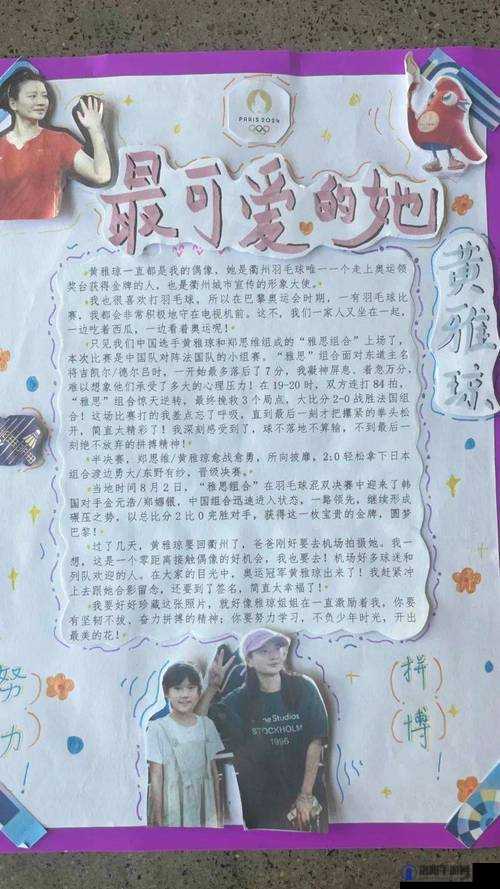 PARIS 2024
最可爱的她
黄雅琼
黄雅琼一直都是我的偶像，她是衢州羽毛球唯一一个走上奥运领
奖台获得金牌的人，也是衢州城市宣传的形象大使。
我也很喜欢打羽毛球，所以在巴黎奥运会时期，一有羽毛球比
赛，我都会非常积极地守在电视机前。这不，我们一家人又坐在一起，
一边吃着西瓜，一边看着奥运呢！
只见我们中国选手黄雅琼和郑思维组成的“雅思组合”上场了，
本次比赛是中国队对阵法国队的小组赛。“雅思”组合面对东道主名
将吉凯尔/德尔吕时，一开始最多落后了7分，我凝神屏息、着急万分，
难以想象他们承受了多大的心理压力！在19-20时，双方连打84拍，
“雅思”组合惊天逆转，最终挽救3个局点，大比分2-0战胜法国组
合！这场比赛打的我差点忘了呼吸，直到最后一刻才把攥紧的拳头松
开，简直太精彩了！我深刻感受到了，球不落地不算输，不到最后一
刻绝不放弃的拼搏精神！
半决赛，郑思维/黄雅琼愈战愈勇，所向披靡，2:0轻松拿下日本
组合渡边勇大/东野有纱，晋级决赛。
当地时间8月2日，“雅思组合”在羽毛球混双决赛中迎来了韩
国对手金元浩/郑娜银，中国组合迅速进入状态，一路领先，继续形成
碾压之势，以总比分2比0完胜对手，获得这一枚宝贵的金牌，圆梦
巴黎！
过了几天，黄雅琼要回衢州了，爸爸刚好要去机场拍摄她。我一
想，这是一个零距离接触偶像的好机会，我也要去！机场好多球迷和
列队欢迎的人。在大家的目光中，奥运冠军黄雅琼出来了！我赶紧冲
上去跟她合影留念，还要到了签名，简直太幸福了！
我要好好珍藏这张照片，就好像雅琼姐姐在一直激励着我，你要
有坚韧不拔，奋力拼搏的精神；你要努力学习，不负少年时光，开出
最美的花！
努力
拼搏
STOCKHOLM
1996